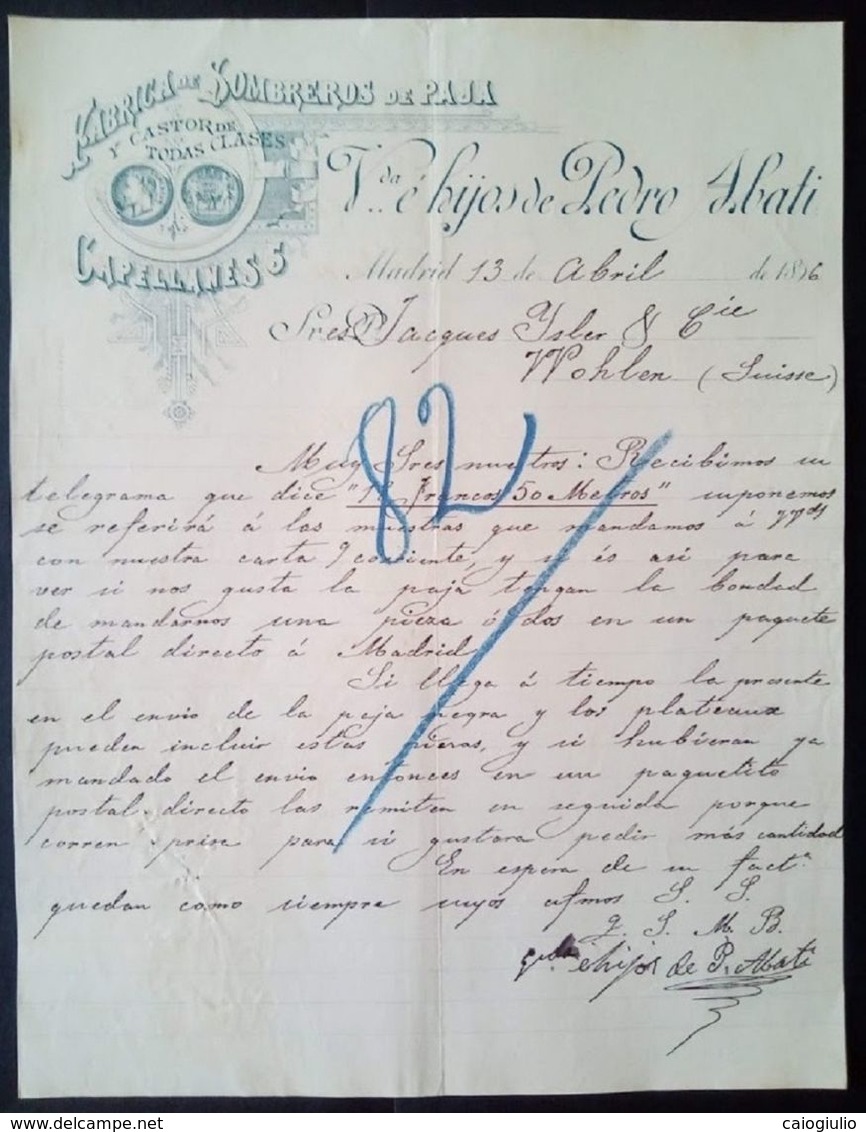 FABRICA DE SOMBREROS DE PAJA
Y CASTOR DE
TODAS CLASES
CAPELLANES 6
V.da é hijos de Pedro Abati
Madrid 13 de Abril de 1896
Sres Jacques Isler & Cie
Wohlen (Suisse)
82
Muy Sres nuestros: Recibimos su
telegrama que dice "1 francos 50 Metros" suponemos
se referirá á las muestras que mandamos á
con nuestra carta 9 corriente, y si és asi para
ver si nos gusta la paja tengan la bondad
de mandarnos una pieza ó dos en un paquete
postal directo á Madrid
Si llega á tiempo la presente
en el envio de la paja negra y los plateaux
pueden incluir estas piezas, y si hubieran ya
mandado el envio entonces en un paquetito
postal directo las remiten en seguida porque
corren prisa para si gustara pedir más cantidad
En espera de su fact.a
quedan como siempre suyos afmos S. S.
q. S. M. B.
é hijos de P. Abati
delcampe.net
caiogiulio